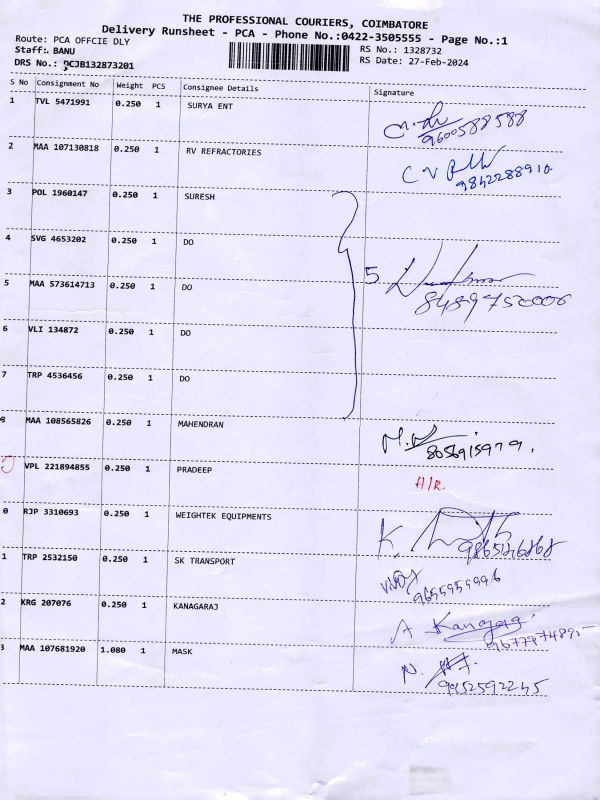 THE PROFESSIONAL COURIERS, COIMBATORE
Delivery Runsheet - PCA - Phone No.:0422-3505555 - Page No.:1
Route: PCA OFFCIE DLY
RS No.: 1328732
Staff: BANU
RS Date: 27-Feb-2024
DRS No.: PCJB132873201
S No Consignment No Weight PCS Consignee Details Signature
1 TVL 5471991 0.250 1 SURYA ENT
9600588588
2 MAA 107130818 0.250 1 RV REFRACTORIES
9842288910
3 POL 1960147 0.250 1 SURESH
4 SVG 4653202 0.250 1 DO
5
5 MAA 573614713 0.250 1 DO
6 VLI 134872 0.250 1 DO
7 TRP 4536456 0.250 1 DO
8 MAA 108565826 0.250 1 MAHENDRAN
8056915979.
VPL 221894855 0.250 1 PRADEEP
A/R.
0 RJP 3310693 0.250 1 WEIGHTEK EQUIPMENTS
1 TRP 2532150 0.250 1 SK TRANSPORT
9655959996
2 KRG 207076 0.250 1 KANAGARAJ
A Kanagaraj
3 MAA 107681920 1.080 1 MASK
9952592245